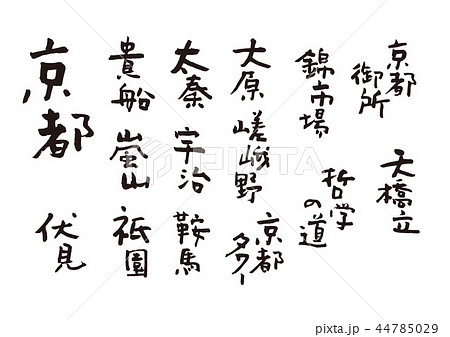 京都
御所
天橋立
錦市場
哲学
の道
大原
嵯峨野
京都
タワー
太秦
宇治
鞍馬
貴船
嵐山
祇園
京都
伏見
PIXTA
pixta.jp - 44785029